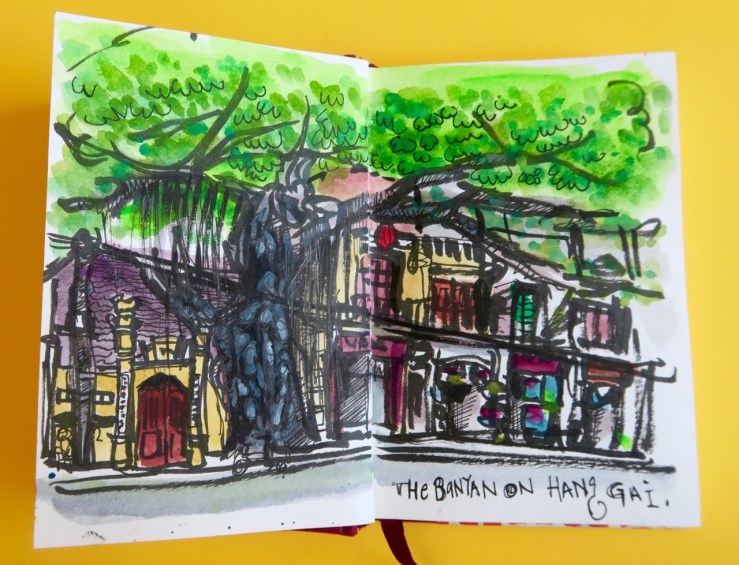 THE BANYAN ON HANG GAI.